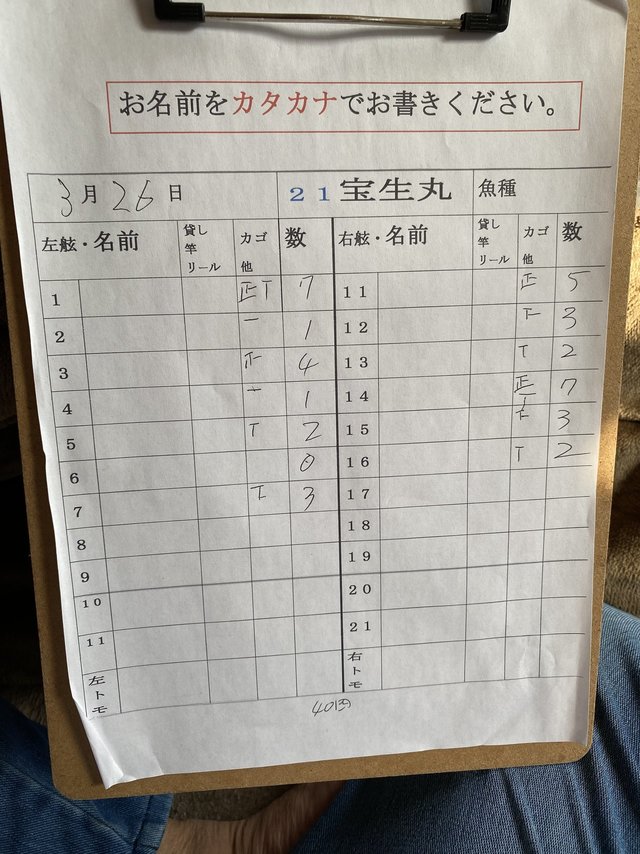 お名前をカタカナでお書きください。
3月26日 21宝生丸 魚種
左舷・名前 貸し竿リール カゴ他 数 右舷・名前 貸し竿リール カゴ他 数
1 正T 7 11 正 5
2 一 1 12 下 3
3 正 4 13 T 2
4 一 1 14 正T 7
5 T 2 15 下 3
6 0 16 T 2
7 下 3 17
8 18
9 19
10 20
11 21
左トモ 右トモ